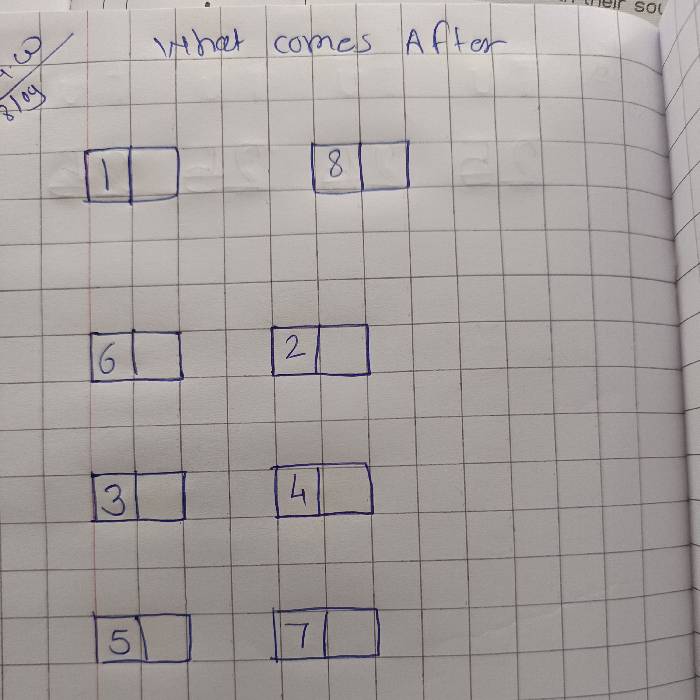 their sou
What comes After
1 8
6 2
3 4
5 7